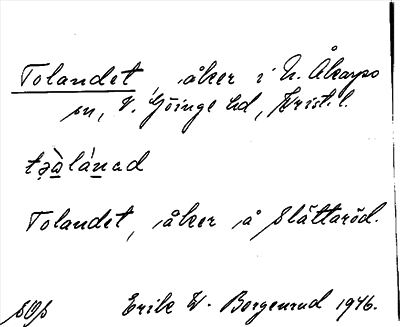 Tolandet, åker i N. Åkarps
sn, V. Göinge hd, Krist. l.
Tolandet, åker å Slättaröd.
Erik W. Borgenrud 1946.